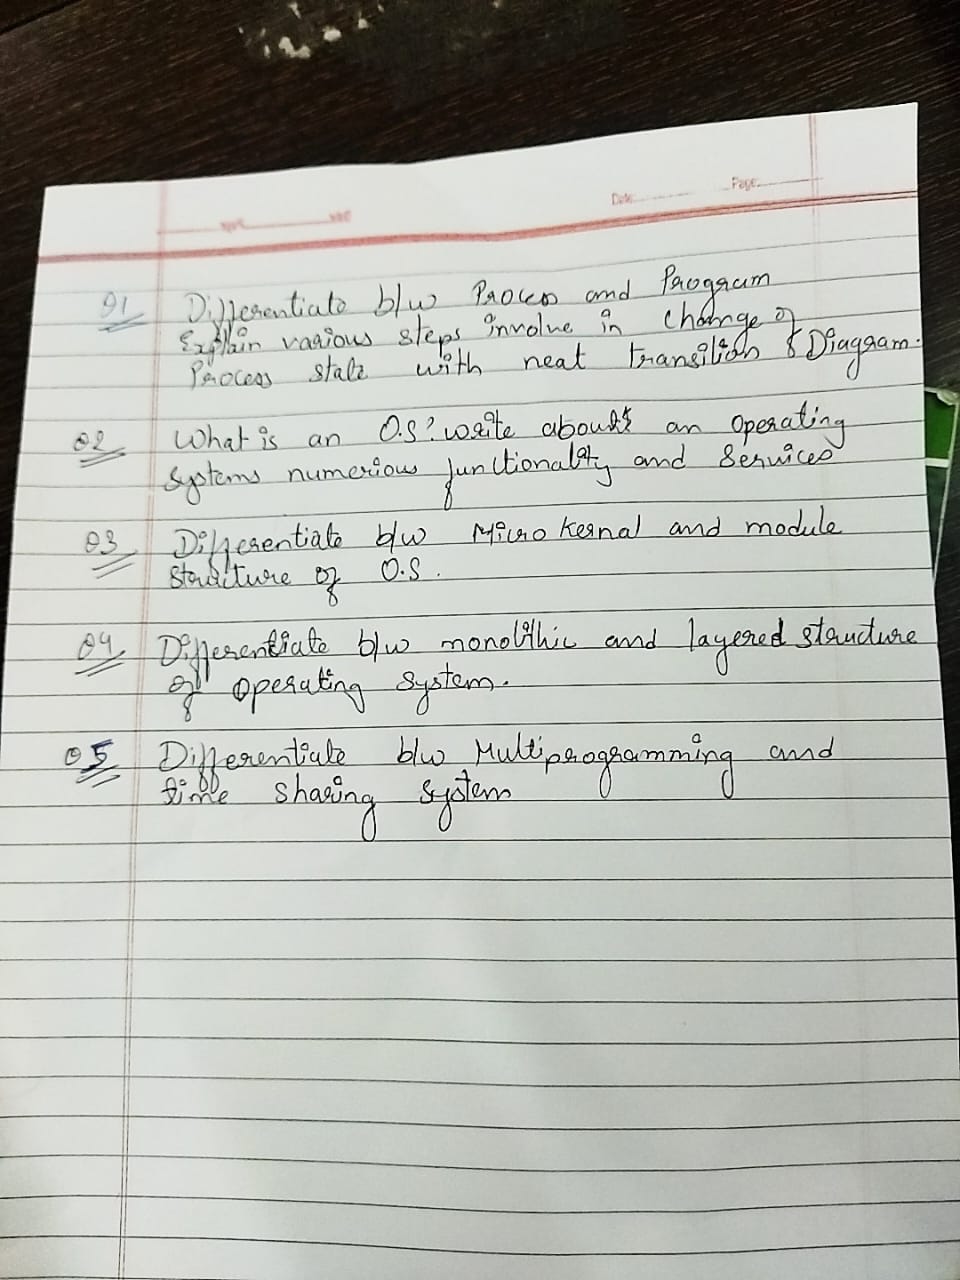 Date Page
Q1 Differentiate b/w Process and Program
Explain various steps involve in change of
Process state with neat transition & Diagram.
Q2 What is an O.S? write about an Operating
Systems numerious functionality and Services
Q3 Differentiate b/w Micro Kernal and module
Structure of O.S.
Q4 Differentiate b/w monolithic and layered structure
of operating system.
Q5 Differentiate b/w Multiprogramming and
time sharing system